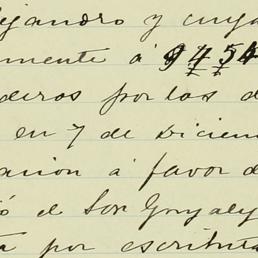 lejandro y cuya
mente á 9454
deros por los d
en 7 de Diciem
ación á favor d
ó el Sor Gonzalez
ta por escritura